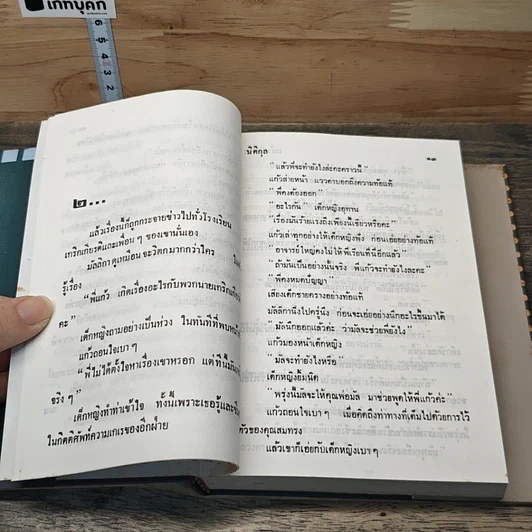 เก่ทบุ๊คก
6 5 4 3 2
๒...
แล้วเรื่องนี้ก็ถูกกระจายข่าวไปทั่วโรงเรียน
เกริกเกียรติและเพื่อน ๆ ของเขานั่นเอง
มัลลิกา ดูเหมือน จะวิตกมากกว่าใคร
รู้เรื่อง
" พี่แก้ว เกิดเรื่องอะไรกับพวกนายเกริก
คะ "
เด็กหญิงถามอย่างเป็นห่วง ในทันทีที่พบหน้า
แก้วถอนใจเบา ๆ
" พี่ไม่ได้ตั้งใจหาเรื่องเขาหรอก แต่ที่
จริง ๆ "
เด็กหญิงทำท่าเข้าใจ ทั้งนี้เพราะเธอรู้
ในกิตติศัพท์ความเกเรของอีกฝ่าย
นิติกุล
๑๗
" แล้วพี่จะทำยังไงล่ะคะคราวนี้ "
แก้วส่ายหน้า แววตาบอกถึงความท้อแท้
" พี่คงต้องออก "
" อะไรกัน " เด็กหญิงอุทาน
" เรื่องมันร้ายแรงถึงเพียงนี้เชียวหรือคะ "
แก้วเล่าทุกอย่างให้เด็กหญิงฟัง ก่อนเอ่ยอย่างท้อแท้
" อาจารย์ใหญ่คงไม่ให้พี่เรียนที่นี่อีกแล้ว "
" ถ้ามันเป็นอย่างนั้นจริง พี่แก้วจะทำยังไงล่ะคะ "
" พี่คงหมดปัญญา "
เสียงเด็กชายครางอย่างท้อแท้
มัลลิกานิ่งไปครู่นึง ก่อนจะเอ่ยอย่างนึกอะไรขึ้นมาได้
" มัลนึกออกแล้วค่ะ ว่ามัลจะช่วยพี่ยังไง "
แก้วมองหน้าเด็กหญิง
" มัลจะทำยังไงหรือ "
เด็กหญิงยิ้มนิด
" พรุ่งนี้มัลจะให้คุณพ่อมัล มาช่วยพูดให้พี่แก้วค่ะ "
แก้วถอนใจเบา ๆ เมื่อคิดถึงท่าทางที่เต็มไปด้วยการไว้
ตัวของคุณสมทรง
แล้วเขาก็เอ่ยกับเด็กหญิงเบา ๆ